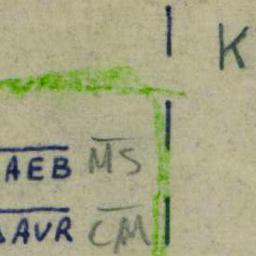 K
AEB MS
AVR CM